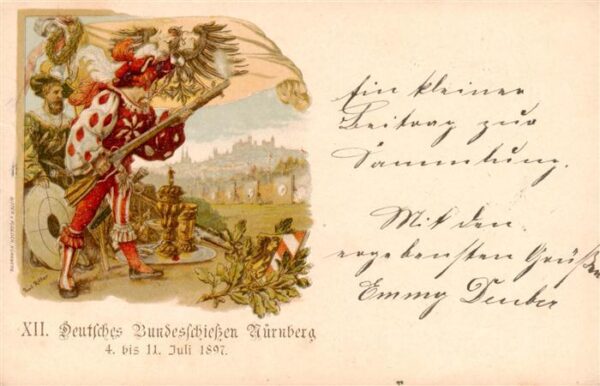 XII. Deutsches Bundesschießen Nürnberg
4. bis 11. Juli 1897.
Ein kleiner
Beitrag zur
Sammlung.
Mit den
ergebensten Grüßen
Emmy